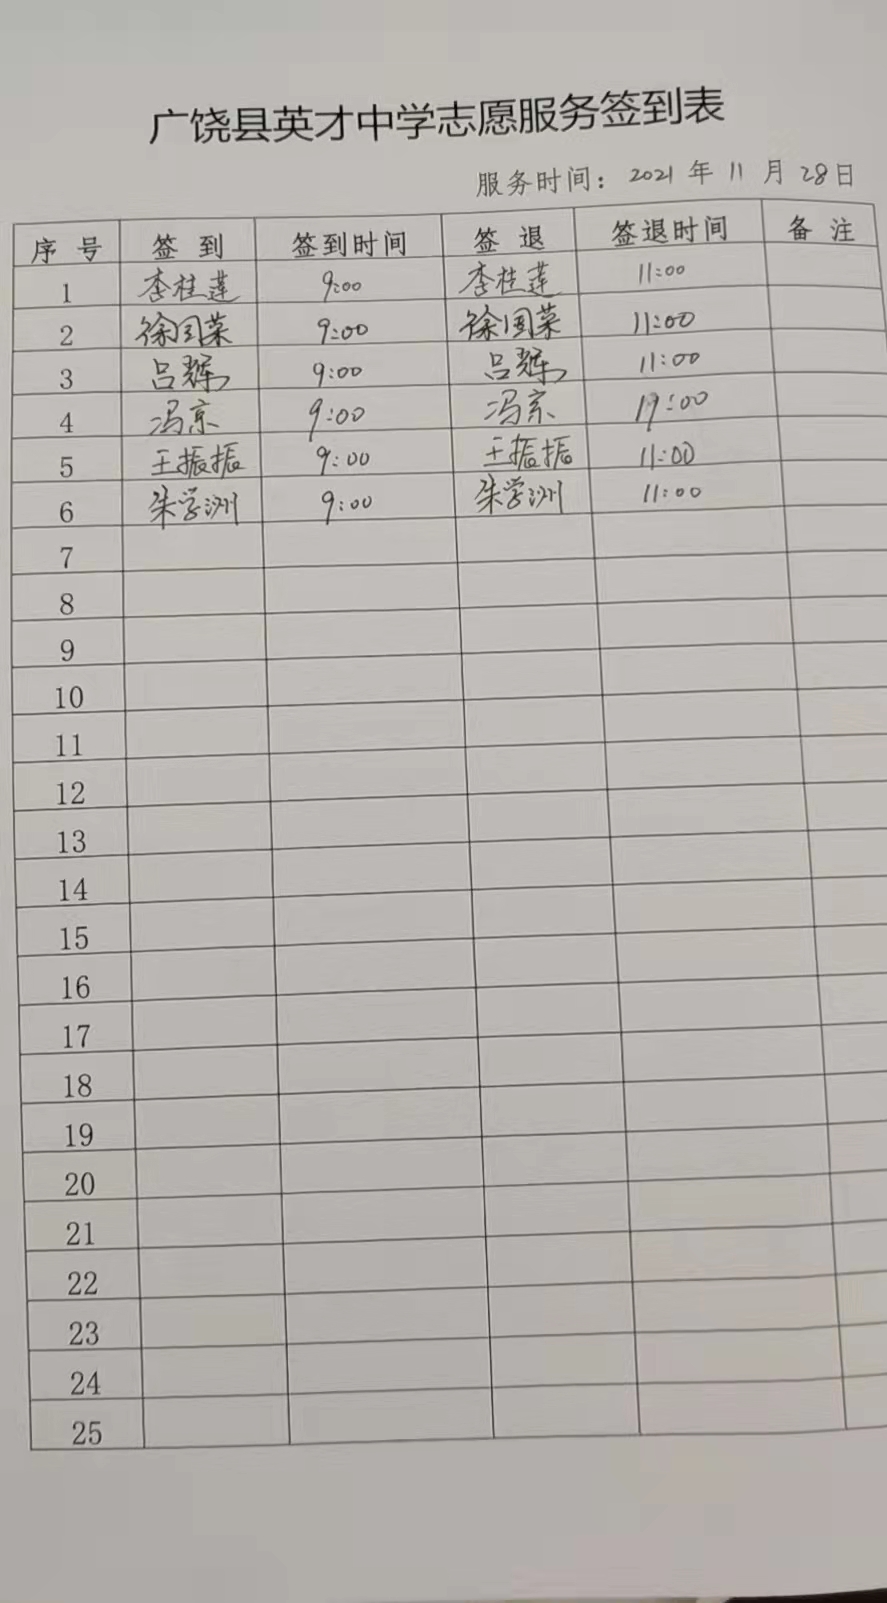 广饶县英才中学志愿服务签到表
服务时间：2021年11月28日
序号 签到 签到时间 签退 签退时间 备注
1 李桂莲 9:00 李桂莲 11:00
2 徐国菜 9:00 徐国菜 11:00
3 吕辉 9:00 吕辉 11:00
4 冯京 9:00 冯京 :00
5 王振振 9:00 王振振 11:00
6 朱学洲 9:00 朱学洲 11:00
7
8
9
10
11
12
13
14
15
16
17
18
19
20
21
22
23
24
25